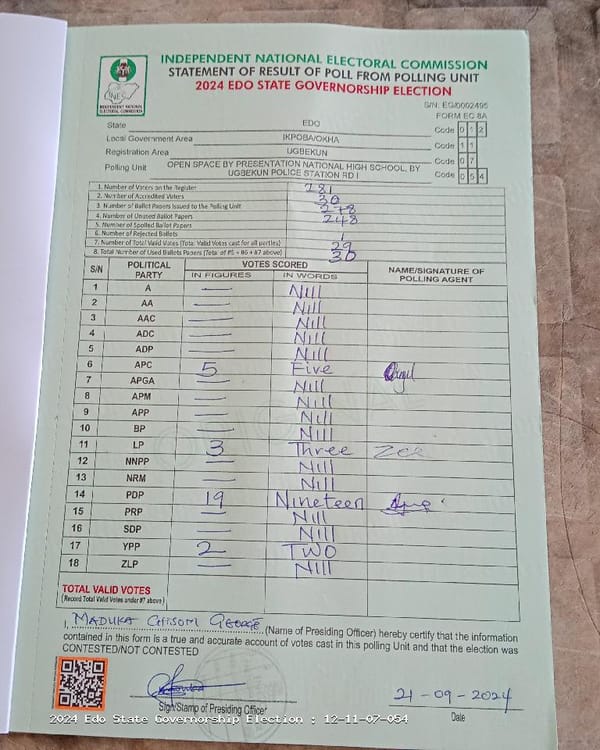 INDEPENDENT NATIONAL ELECTORAL COMMISSION
STATEMENT OF RESULT OF POLL FROM POLLING UNIT
2024 EDO STATE GOVERNORSHIP ELECTION
INEC
INDEPENDENT NATIONAL ELECTORAL COMMISSION
S/N: EG/0002495
FORM EC 8A
State EDO Code 0 1 2
Local Government Area IKPOBA/OKHA Code 1 1
Registration Area UGBEKUN Code 0 7
Polling Unit OPEN SPACE BY PRESENTATION NATIONAL HIGH SCHOOL, BY UGBEKUN POLICE STATION RD I Code 0 5 4
1. Number of Voters on the Register 281
2. Number of Accredited Voters 30
3. Number of Ballot Papers Issued to the Polling Unit 278
4. Number of Unused Ballot Papers 248
5. Number of Spoiled Ballot Papers
6. Number of Rejected Ballots 1
7. Number of Total Valid Votes (Total Valid Votes cast for all parties) 29
8. Total Number of Used Ballots Papers (Total of #5 + #6 + #7 above) 30
S/N POLITICAL PARTY VOTES SCORED NAME/SIGNATURE OF POLLING AGENT
IN FIGURES IN WORDS
1 A — Nill
2 AA — Nill
3 AAC — Nill
4 ADC — Nill
5 ADP — Nill
6 APC 5 Five
7 APGA — Nill
8 APM — Nill
9 APP — Nill
10 BP — Nill
11 LP 3 Three
12 NNPP — Nill
13 NRM — Nill
14 PDP 19 Nineteen
15 PRP — Nill
16 SDP — Nill
17 YPP 2 TWO
18 ZLP — Nill
TOTAL VALID VOTES
(Record Total Valid Votes under #7 above)
I, MADUKA CHISOM GEORGE (Name of Presiding Officer) hereby certify that the information
contained in this form is a true and accurate account of votes cast in this polling Unit and that the election was
CONTESTED/NOT CONTESTED
21-09-2024
Sign/Stamp of Presiding Officer Date
2024 Edo State Governorship Election : 12-11-07-054